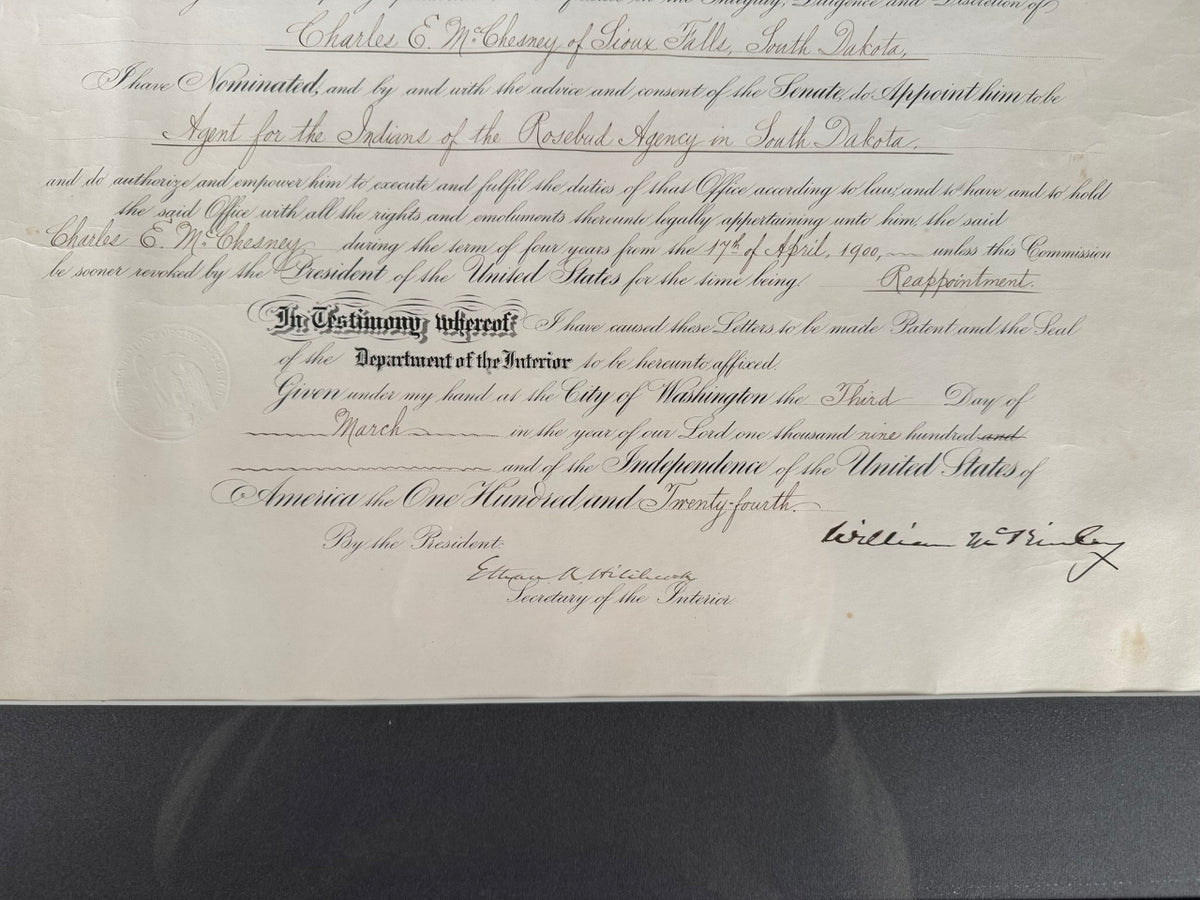 in the Integrity, Diligence and Discretion of
Charles E. McChesney of Sioux Falls, South Dakota,
I have Nominated, and by and with the advice and consent of the Senate, do Appoint him to be
Agent for the Indians of the Rosebud Agency in South Dakota,
and do authorize and empower him to execute and fulfil the duties of that Office according to law; and to have and to hold
the said Office with all the rights and emoluments thereunto legally appertaining unto him, the said
Charles E. McChesney during the term of four years from the 17th of April, 1900, unless this Commission
be sooner revoked by the President of the United States for the time being. Reappointment.
In Testimony whereof, I have caused these Letters to be made Patent and the Seal
of the Department of the Interior to be hereunto affixed.
Given under my hand at the City of Washington the Third Day of
March in the year of our Lord one thousand nine hundred and
and of the Independence of the United States of
America the One Hundred and Twenty-fourth.
William McKinley
By the President:
Ethan A. Hitchcock
Secretary of the Interior.